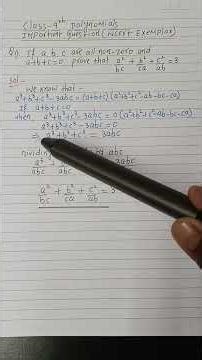 Class-9th polynomials
Important Question (NCERT Exemplar)
Q1) If a, b, c are all non-zero and
a+b+c=0 prove that a²/bc + b²/ca + c²/ab = 3
Sol -
We know that -
a³+b³+c³-3abc=(a+b+c)(a²+b²+c²-ab-bc-ca)
If a+b+c=0
then, a³+b³+c³-3abc=0(a²+b²+c²-ab-bc-ca)
a³+b³+c³-3abc=0
⇒ a³+b³+c³ = 3abc
abc
a³/abc 3abc
a²/bc + b²/ca + c²/ab = 3